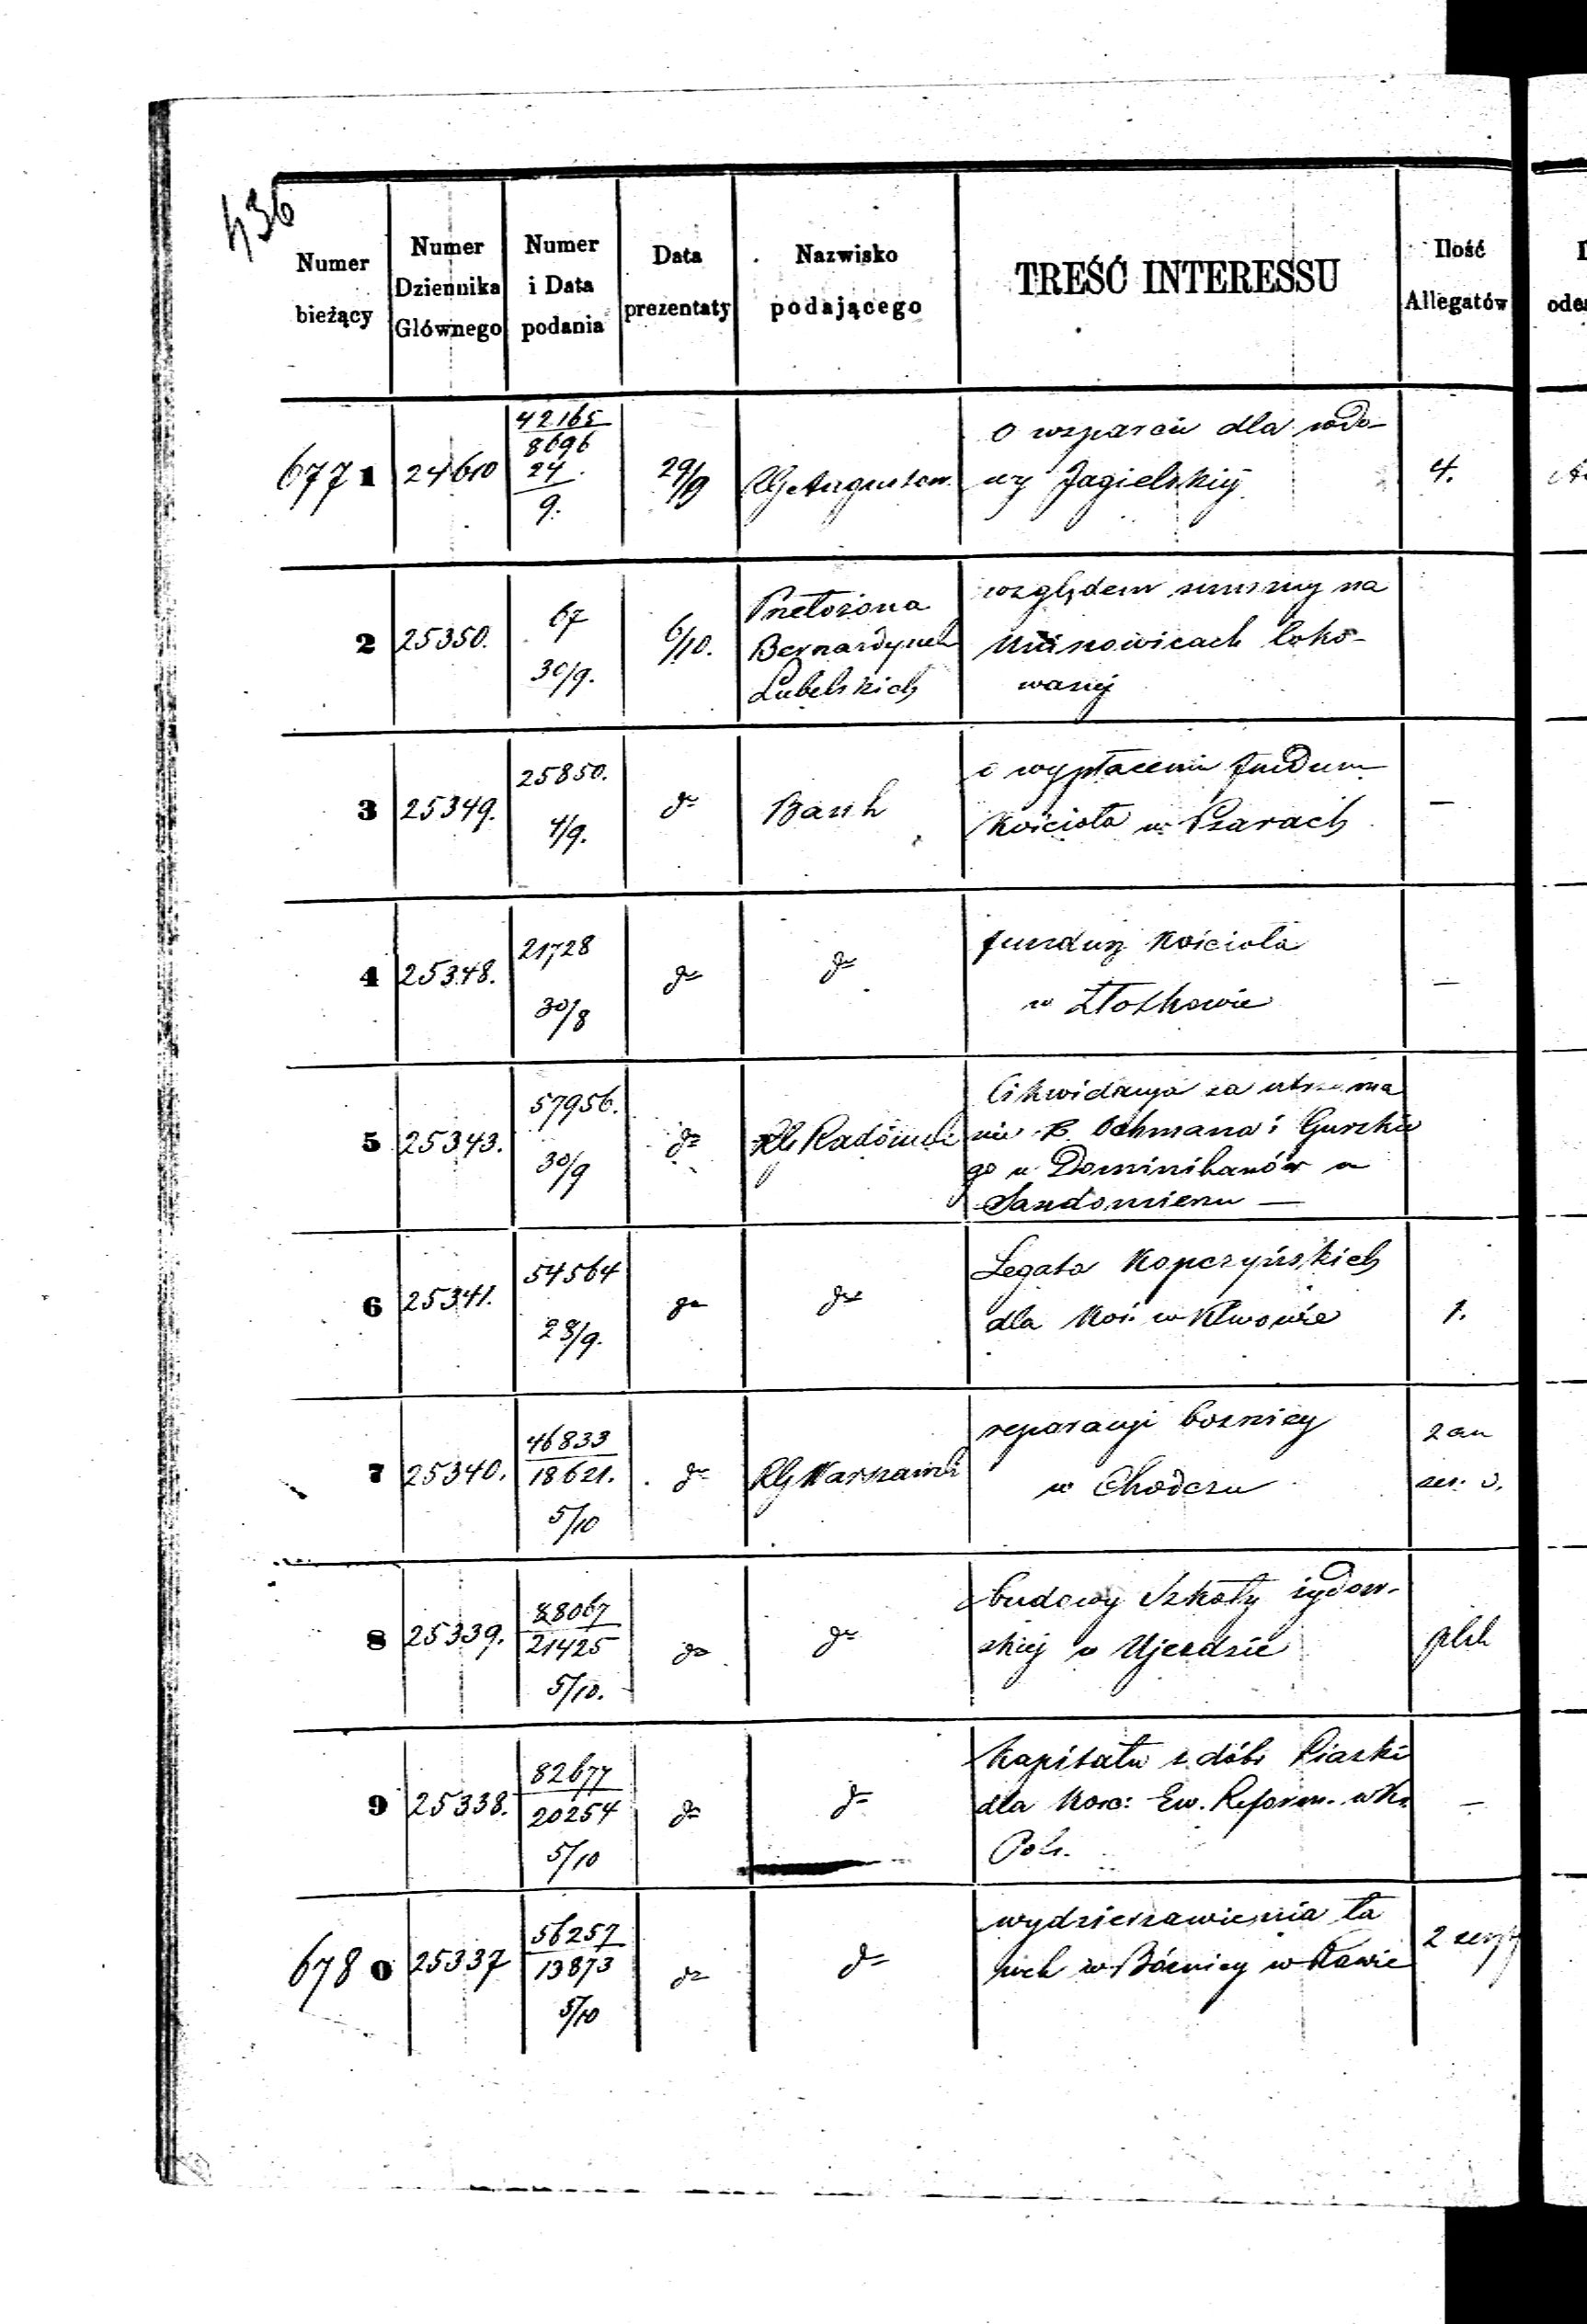 436
Numer
bieżący
Numer
Dziennika
Głównego
Numer
i Data
podania
Data
prezentaty
Nazwisko
podającego
TREŚĆ INTERESSU
Ilość
Allegatów
oder
6771
24610
42165
8696
24
9.
29/9
RG Augustow.
o wsparcie dla wdo-
wy Jagielskiej
4.
2
25350.
67
30/9.
6/10.
Przełożona
Bernardynek
Lubelskich
względem summy na
loko-
wanej
3
25349.
25850.
4/9.
do
Bank
o wypłacenie fundum
Kościoła w Psarach
—
4
25348.
21728
30/8
do
do
fundusz Kościoła
w Złotkowie
—
5
25343.
57956.
30/9
do
RG Radomski
likwidacya za utrzyma
nie X. Ochmana i Gurskie
go u Dominikanów w
Sandomierzu —
6
25341.
54564
28/9.
do
do
Legata Kopczyńskich
dla Koś. w Klwowie
1.
7
25340.
46833
18621.
5/10
do
RG Warszawski
reparacyi bożnicy
w Chodczu
2 an
8
25339.
88067
21425
5/10.
do
do
budowy Szkoły żydow-
skiej w Ujezdzie
plik
9
25338.
82677
20254
5/10
do
do
Kapitału z dóbr Piaski
dla Kosc: Ew. Reform. w Kr.
Pols.
—
6780
25337
56257
13873
5/10
do
do
wydzierzawienia ła
wek w Bóżnicy w Rawie
2